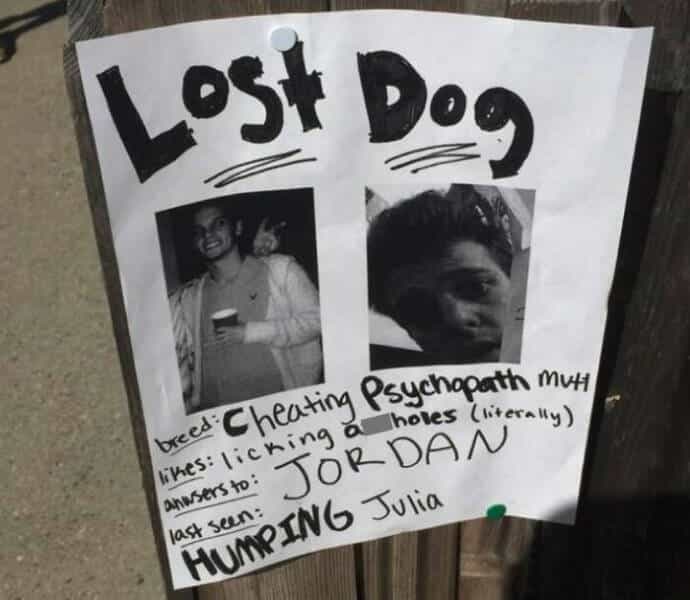 Lost Dog
breed: Cheating Psychopath mutt
likes: licking a holes (literally)
answers to: JORDAN
last seen:
HUMPING Julia